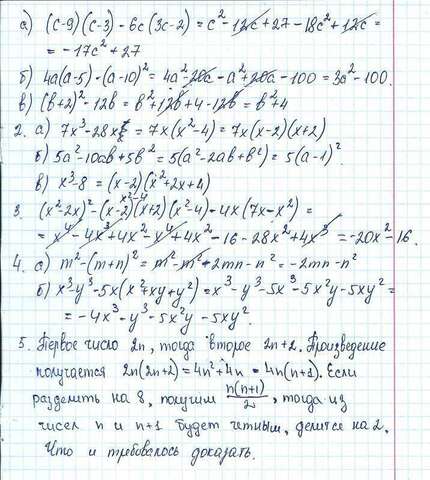 а) (c-9)(c-3) - 6c(3c-2) = c² - 12c + 27 - 18c² + 12c =
= -17c² + 27
б) 4a(a-5) - (a-10)² = 4a² - 20a - a² + 20a - 100 = 3a² - 100.
в) (b+2)² - 12b = b² + 12b + 4 - 12b = b² + 4
2. а) 7x³ - 28x = 7x(x² - 4) = 7x(x-2)(x+2)
б) 5a² - 10ab + 5b² = 5(a² - 2ab + b²) = 5(a-1)².
в) x³ - 8 = (x-2)(x² + 2x + 4)
x² - 4
3. (x² - 2x)² - (x-2)(x+2)(x² - 4) - 4x(7x - x²) =
= x⁴ - 4x³ + 4x² - x⁴ + 4x² - 16 - 28x² + 4x³ = -20x² - 16.
4. а) m² - (m+n)² = m² - m² - 2mn - n² = -2mn - n²
б) x³ - y³ - 5x(x² + xy + y²) = x³ - y³ - 5x³ - 5x²y - 5xy² =
= -4x³ - y³ - 5x²y - 5xy².
5. Первое число 2n, тогда второе 2n+2. Произведение
получается 2n(2n+2) = 4n² + 4n = 4n(n+1). Если
разделить на 8, получим n(n+1)/2, тогда из
чисел n и n+1 будет четным, делится на 2.
Что и требовалось доказать.